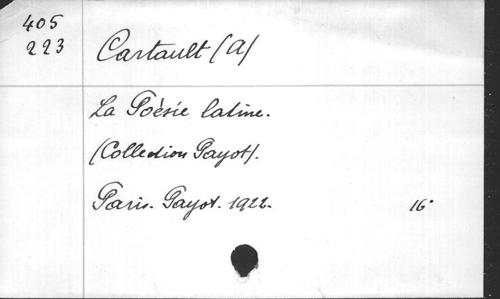 405
223
Cartault (A)
La Poèsie latine.
(Collection Payot).
Paris. Payot. 1922.
16°